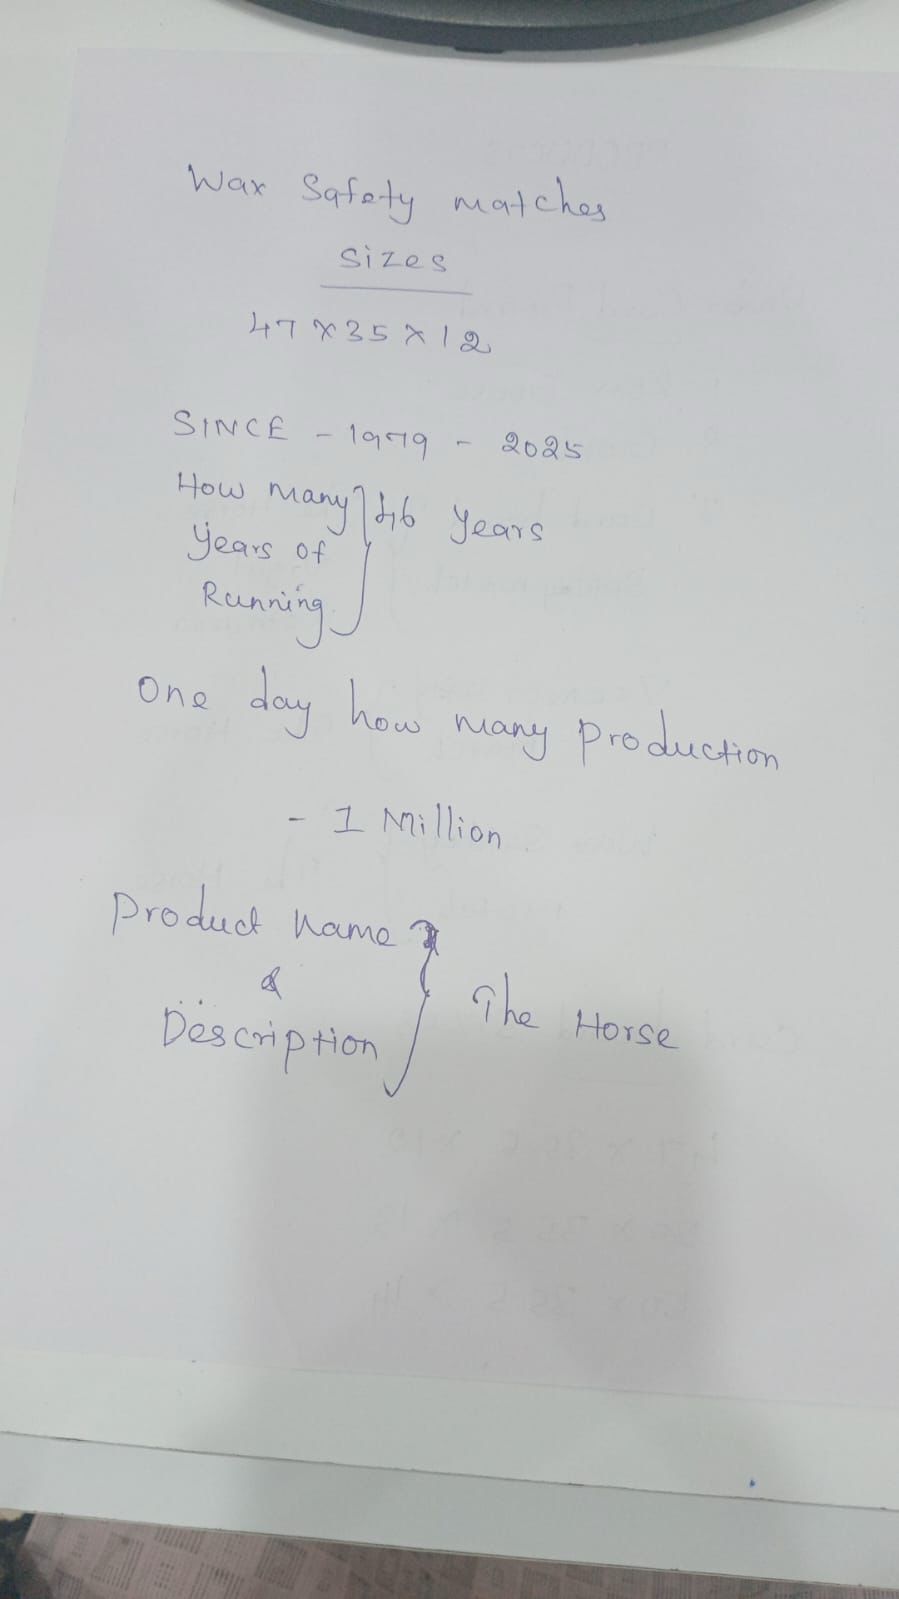 Wax Safety matches
Sizes
47 x 35 x 12
SINCE - 1979 - 2025
How many
years of
Running
46 years
One day how many production
- 1 Million
Product Name
&
Description
The Horse